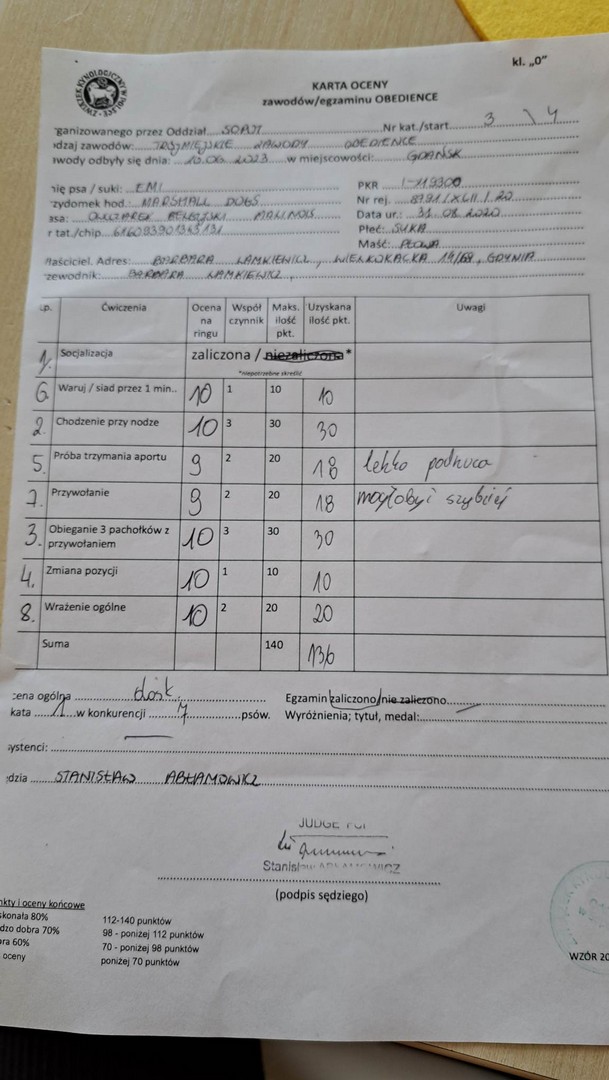 kl. „0"
ZWIĄZEK KYNOLOGICZNY W POLSCE
KARTA OCENY
zawodów/egzaminu OBEDIENCE
rganizowanego przez Oddział....SOPOT Nr kat./start......3 \ 4
dzaj zawodów:.... TRÓJMIEJSKIE ZAWODY OBEDIENCE
wody odbyły się dnia: 10.06.2023 w miejscowości: GDAŃSK
nię psa / suki: EMI PKR I-119300
zydomek hod.: MARSHALL DOGS Nr rej. 8791/XLII/20
asa: OWCZAREK BELGIJSKI MALINOIS Data ur.: 31.08.2020
r tat./chip... 616093901345131 Płeć: SUKA
Maść: PŁOWA
łaściciel. Adres: BARBARA LAMKIEWICZ, WIELKOKACKA 14/68, GDYNIA
zewodnik: BARBARA LAMKIEWICZ,
.p. Ćwiczenia Ocena na ringu Współ czynnik Maks. ilość pkt. Uzyskana ilość pkt. Uwagi
1. Socjalizacja zaliczona / niezaliczona*
*niepotrzebne skreślić
6 Waruj / siad przez 1 min.. 10 1 10 10
2. Chodzenie przy nodze 10 3 30 30
5. Próba trzymania aportu 9 2 20 18 lekko podrzuca
7. Przywołanie 9 2 20 18 mogłoby szybciej
3. Obieganie 3 pachołków z przywołaniem 10 3 30 30
4. Zmiana pozycji 10 1 10 10
8. Wrażenie ogólne 10 2 20 20
Suma 140 136
cena ogólna dosk. Egzamin zaliczono/nie zaliczono
kata 1 w konkurencji 7 psów. Wyróżnienia; tytuł, medal:
systenci:
dzia STANISŁAW ABŁAMOWICZ
JUDGE FCI
Stanisław ABŁAMOWICZ
(podpis sędziego)
nkty i oceny końcowe
skonała 80% 112-140 punktów
dzo dobra 70% 98 - poniżej 112 punktów
ra 60% 70 - poniżej 98 punktów
oceny poniżej 70 punktów
WZÓR 20